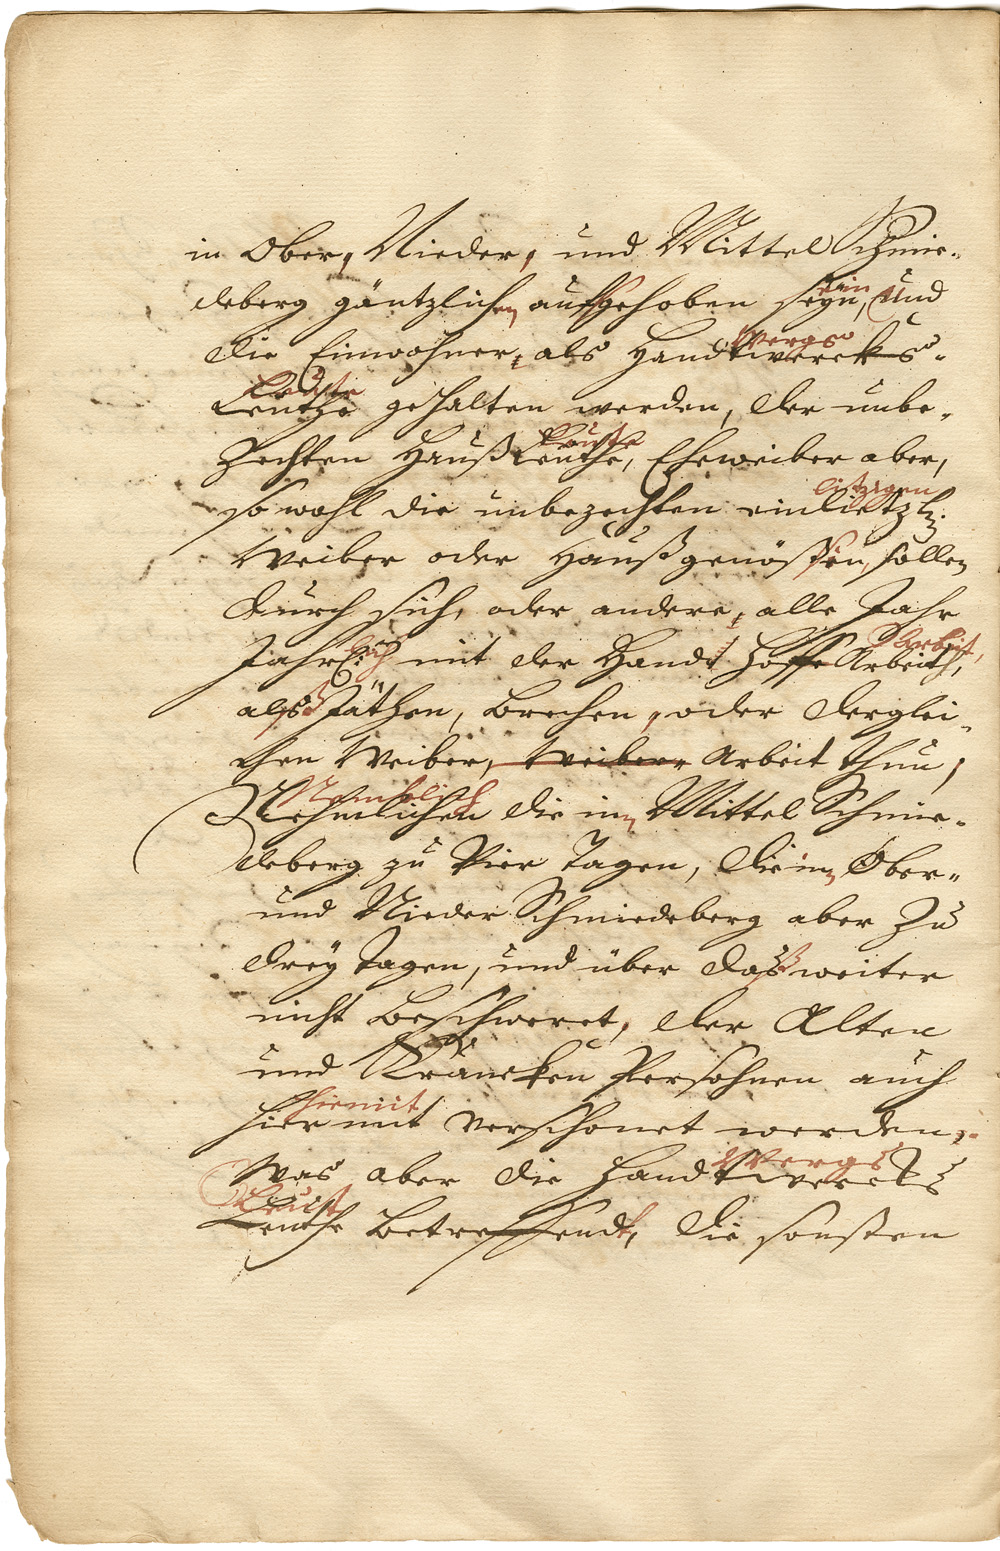 in Ober, Nieder, und Mittel Schmie-
deberg gäntzlichen auffgehoben seyn, und
sein
die Einwohner, als Handtwercks-
Wergs
Leuthe gehalten werden, der unbe-
Leuste
zechten Haußleuthe, Eheweiber aber,
so wohl die unbezechten einlietz:
litzigen
Weiber oder Haußgenößen, sollen
durch sich, oder andere, alle Jahr
Jährl: mit der Handt Hoffe Arbeith,
lich Arbeit,
alß Jäthen, brechen, oder derglei-
chen Weiber, Weiber Arbeit thun,
Nehmlichen die im Mittel Schmie-
Nemblich
deberg zu Vier Tagen, die im Ober-
und Nieder Schmiedeberg aber zu
drey Tagen, und über daß weiter
nicht beschweret, der Alten
und Krancken Persohnen auch
hier mit verschonet werden,
hiemit
Was aber die Handtwercks
Wergs
Leuthe betreffendt, die sonsten